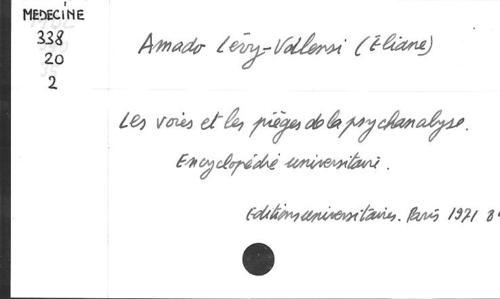 MEDECINE
338
20
2
Amado Lévy-Vallensi (Éliane)
Les voies et les pièges de la psychanalyse.
Encyclopédie universitaire.
Editions universitaires. Paris 1971 8°